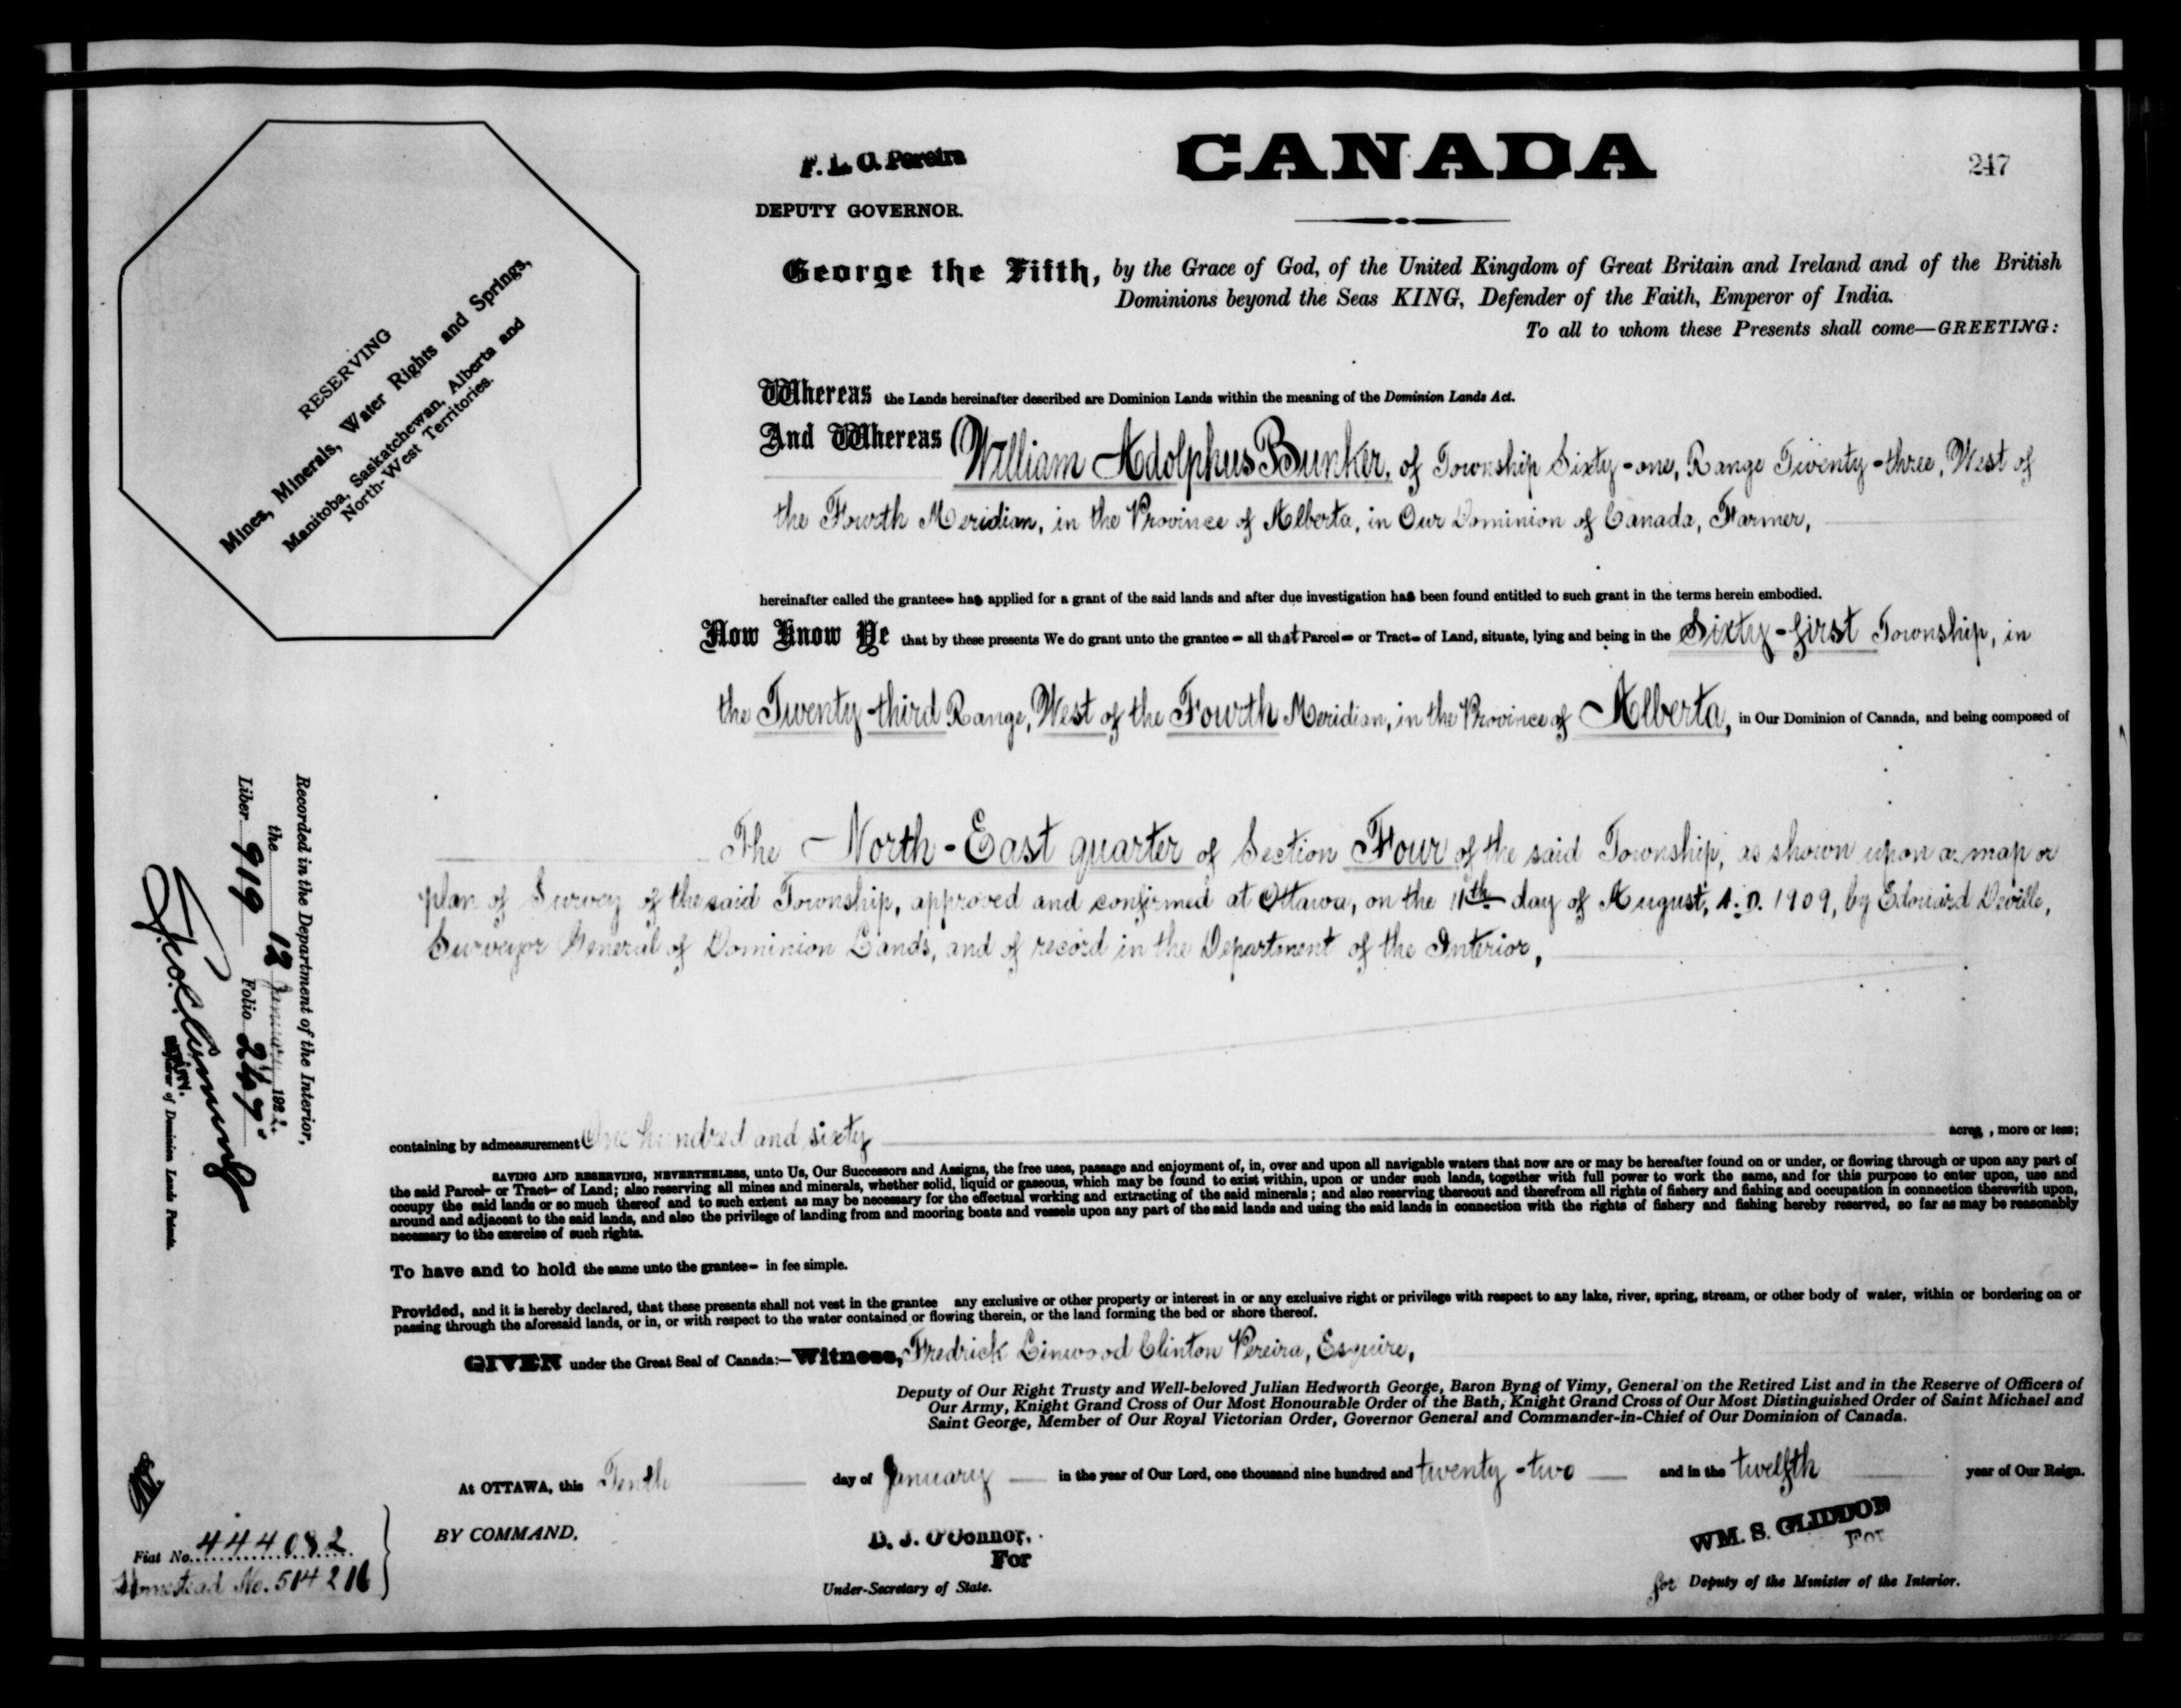 CANADA
247
F. L. C. Pereira
DEPUTY GOVERNOR.
George the Fifth, by the Grace of God, of the United Kingdom of Great Britain and Ireland and of the British
Dominions beyond the Seas KING, Defender of the Faith, Emperor of India.
To all to whom these Presents shall come—GREETING:
RESERVING
Mines, Minerals, Water Rights and Springs,
Manitoba, Saskatchewan, Alberta and
North-West Territories.
Whereas the Lands hereinafter described are Dominion Lands within the meaning of the Dominion Lands Act.
And Whereas William Adolphus Bunker, of Township Sixty-one, Range Twenty-three, West of
the Fourth Meridian, in the Province of Alberta, in Our Dominion of Canada, Farmer,
hereinafter called the grantee has applied for a grant of the said lands and after due investigation has been found entitled to such grant in the terms herein embodied.
Now Know Ye that by these presents We do grant unto the grantee all that Parcel or Tract of Land, situate, lying and being in the Sixty-first Township, in
the Twenty-third Range, West of the Fourth Meridian, in the Province of Alberta, in Our Dominion of Canada, and being composed of
The North-East quarter of Section Four of the said Township, as shown upon a map or
plan of Survey of the said Township, approved and confirmed at Ottawa, on the 11th day of August, A.D. 1909, by Edouard Deville,
Surveyor General of Dominion Lands, and of record in the Department of the Interior,
containing by admeasurement One hundred and sixty acres, more or less;
SAVING AND RESERVING, NEVERTHELESS, unto Us, Our Successors and Assigns, the free uses, passage and enjoyment of, in, over and upon all navigable waters that now are or may be hereafter found on or under, or flowing through or upon any part of
the said Parcel or Tract of Land; also reserving all mines and minerals, whether solid, liquid or gaseous, which may be found to exist within, upon or under such lands, together with full power to work the same, and for this purpose to enter upon, use and
occupy the said lands or so much thereof and to such extent as may be necessary for the effectual working and extracting of the said minerals; and also reserving thereout and therefrom all rights of fishery and fishing and occupation in connection therewith upon,
around and adjacent to the said lands, and also the privilege of landing from and mooring boats and vessels upon any part of the said lands and using the said lands in connection with the rights of fishery and fishing hereby reserved, so far as may be reasonably
necessary to the exercise of such rights.
To have and to hold the same unto the grantee in fee simple.
Provided, and it is hereby declared, that these presents shall not vest in the grantee any exclusive or other property or interest in or any exclusive right or privilege with respect to any lake, river, spring, stream, or other body of water, within or bordering on or
passing through the aforesaid lands, or in, or with respect to the water contained or flowing therein, or the land forming the bed or shore thereof.
GIVEN under the Great Seal of Canada:—Witness, Fredrick Linwood Clinton Pereira, Esquire,
Deputy of Our Right Trusty and Well-beloved Julian Hedworth George, Baron Byng of Vimy, General on the Retired List and in the Reserve of Officers of
Our Army, Knight Grand Cross of Our Most Honourable Order of the Bath, Knight Grand Cross of Our Most Distinguished Order of Saint Michael and
Saint George, Member of Our Royal Victorian Order, Governor General and Commander-in-Chief of Our Dominion of Canada.
At OTTAWA, this Tenth day of January in the year of Our Lord, one thousand nine hundred and twenty-two and in the twelfth year of Our Reign.
BY COMMAND,
D. J. O'Connor,
For
Under-Secretary of State.
WM. S. GLIDDON
For
for Deputy of the Minister of the Interior.
Recorded in the Department of the Interior,
the 12 January 1922.
Liber 919 Folio 247.
of Dominion Lands Patents.
Fiat No. 444082
Homestead No. 514216